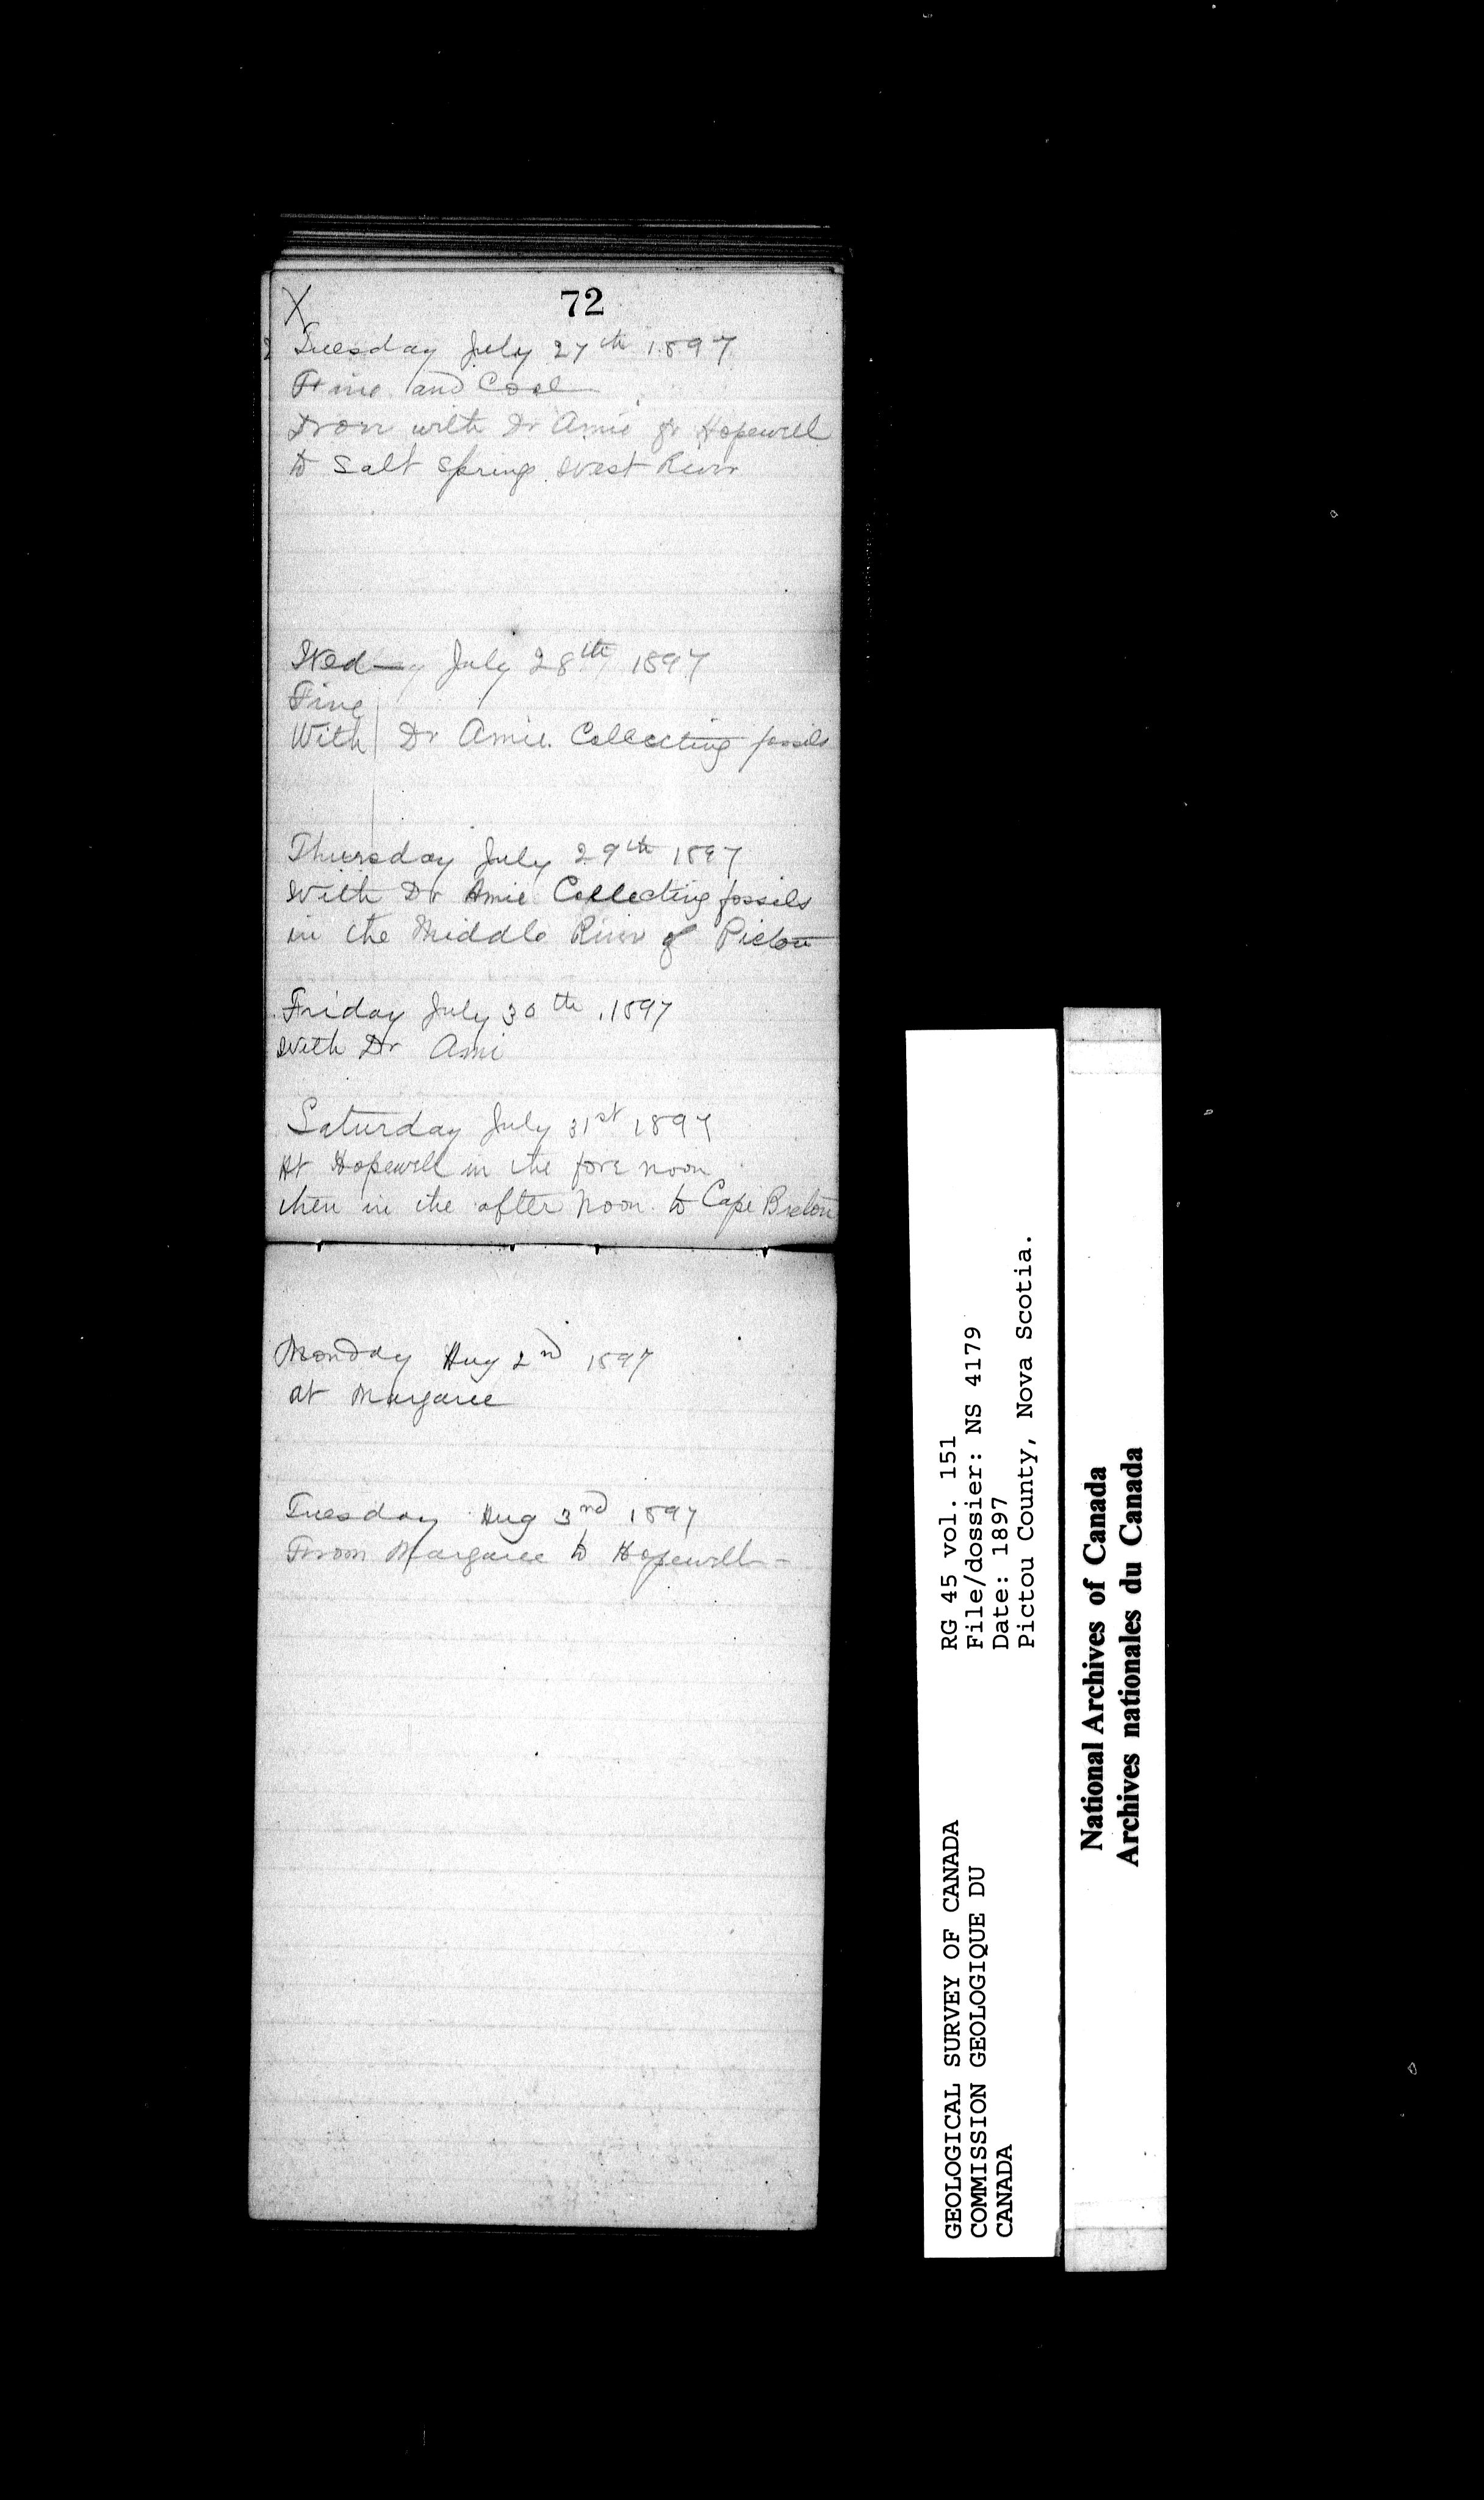 X
72
Tuesday July 27th 1897
Fine and Cool
Drov with Dr Amie fr Hopewell
to Salt Spring West River
Wed—y July 28th 1897
Fine
With Dr Amie Collecting fossils
Thursday July 29th 1897
With Dr Amie Collecting fossils
in the Middle River of Pictou
Friday July 30th 1897
with Dr Ami
Saturday July 31st 1897
At Hopewell in the fore noon
then in the after Noon to Cape Breton
Monday Aug 2nd 1897
at Margaree
Tuesday Aug 3nd 1897
From Margaree to Hopewell -
GEOLOGICAL SURVEY OF CANADA
COMMISSION GEOLOGIQUE DU
CANADA
RG 45 vol. 151
File/dossier: NS 4179
Date: 1897
Pictou County, Nova Scotia.
National Archives of Canada
Archives nationales du Canada